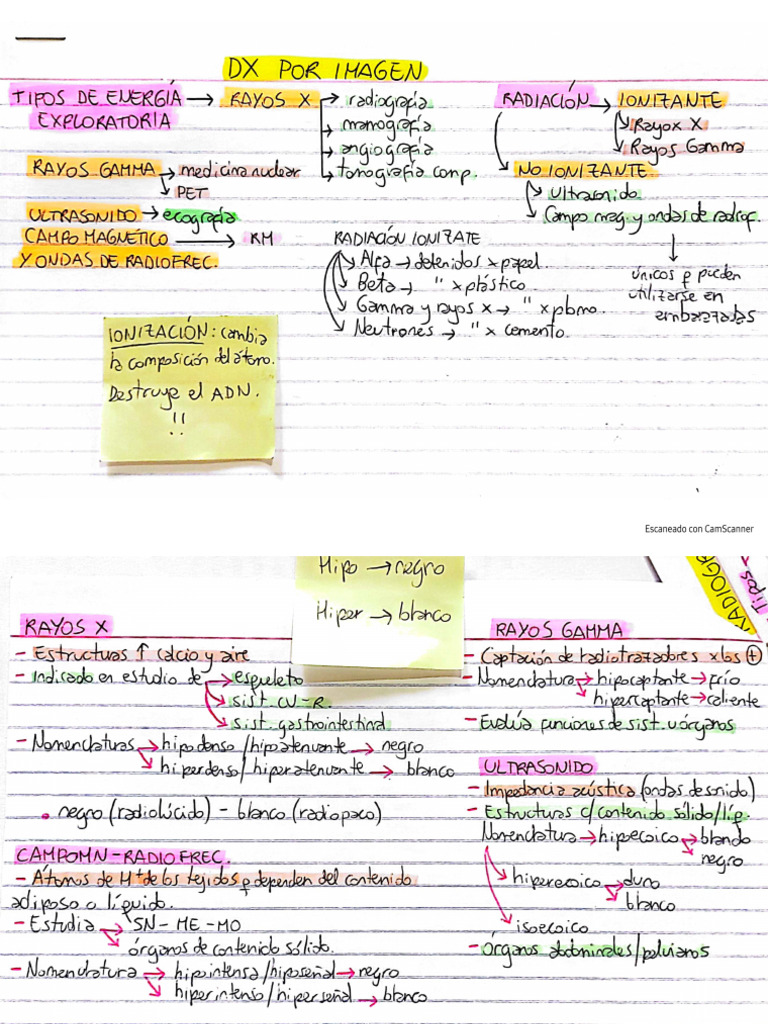 DX POR IMAGEN
TIPOS DE ENERGÍA → RAYOS X → radiografía
EXPLORATORIA
→ mamografía
→ angiografía
→ tomografía comp.
RAYOS GAMMA → medicina nuclear
→ PET
ULTRASONIDO → ecografía
CAMPO MAGNÉTICO → RM
Y ONDAS DE RADIOFREC.
RADIACIÓN → IONIZANTE
→ Rayox X
→ Rayos Gamma
→ NO IONIZANTE
→ Ultrasonido
→ Campo mag. y ondas de radiof.
↓
únicos q pueden
utilizarse en
embarazadas
RADIACIÓN IONIZATE
Alfa → detenidos x papel.
Beta → " x plástico.
Gamma y rayos x → " x plomo.
Neutrones → " x cemento.
IONIZACIÓN: cambia
la composición del átomo.
Destruye el ADN.
!!
Escaneado con CamScanner
Hipo → negro
Hiper → blanco
Tipos
RAYOS X
- Estructuras ↑ calcio y aire
- Indicado en estudio de → esqueleto
→ sist. CV-R.
→ sist. gastrointestinal
- Nomenclaturas → hipodenso/hipoatenuante → negro
→ hiperdenso/hiperatenuante → blanco
• negro (radiolúcido) - blanco (radiopaco)
CAMPO MN-RADIOFREC.
- Átomos de H+ de los tejidos q dependen del contenido
adiposo o líquido.
- Estudia → SN-ME-MO
→ órganos de contenido sólido.
- Nomenclatura → hipointensa/hiposeñal → negro
→ hiperintenso/hiperseñal → blanco
RAYOS GAMMA
- Captación de radiotrazadores x los (+)
- Nomenclatura → hipocaptante → frío
→ hipercaptante → caliente
- Evalúa funciones de sist. u órganos
ULTRASONIDO
- Impedancia acústica (ondas de sonido)
- Estructuras c/contenido sólido/líq.
Nomenclatura → hipoecoico → blando
→ negro
→ hiperecoico → duro
→ blanco
→ isoecoico
- Órganos abdominales/pelvianos